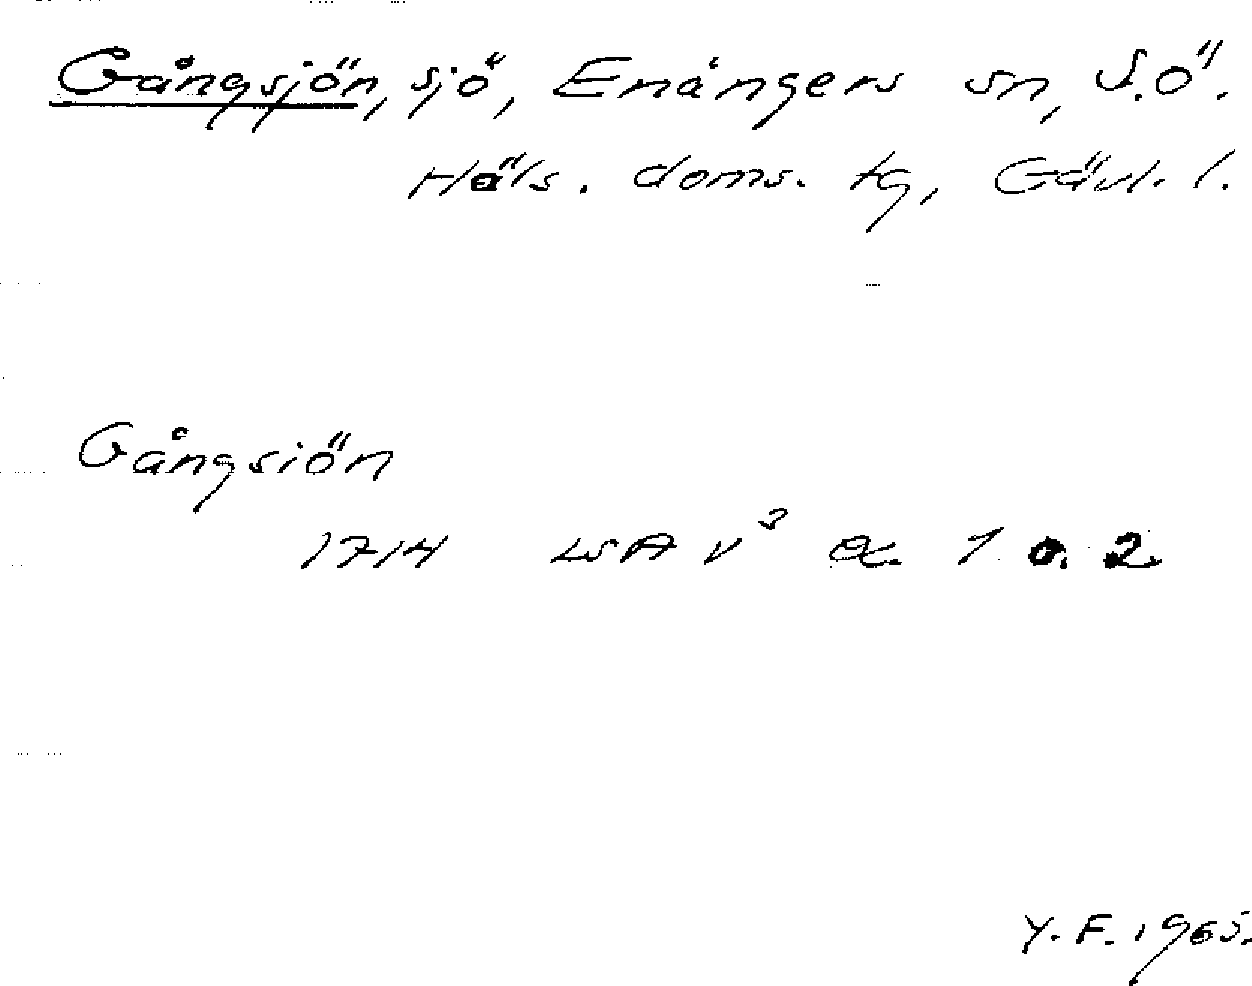 Gångsjön, sjö, Enångers sn, S.Ö.
Häls. doms. tg, Gävl. l.
Gångsiön
1714 LSA V³ α. 1 o. 2
Y. F. 1965.